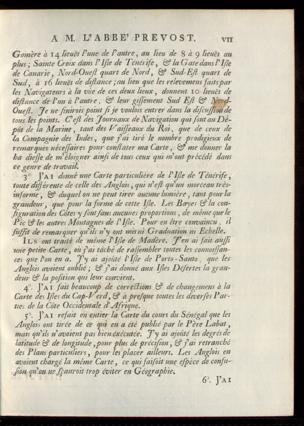 A M. L'ABBÉ PREVOST. VII
Gomère à 14 lieües l'une de l'autre, au lieu de 8 à 9 lieües au
plus; Sainte Croix dans l'Isle de Ténérife, & la Gate dans l'Isle
de Canarie, Nord-Ouest quart de Nord, & Sud-Est quart de
Sud, à 16 lieües de distance; au lieu que les relèvemens faits par
les Navigateurs à la vûe de ces deux lieux, donnent 10 lieües de
distance de l'un à l'autre, & leur gissement Sud Est & Nord-
Ouest. Je ne finirois point si je voulois entrer dans la discussion de
tous les points. C'est des Journaux de Navigation qui sont au Dé-
pôt de la Marine, tant des Vaisseaux du Roi, que de ceux de
la Compagnie des Indes, que j'ai tiré le nombre prodigieux de
remarques nécessaires pour constater ma Carte, & me donner la
hardiesse de m'éloigner ainsi de tous ceux qui m'ont précédé dans
ce genre de travail.
3°. J'AI donné une Carte particulière de l'Isle de Ténérife,
toute différente de celle des Anglois, qui n'est qu'un morceau très-
informe, & duquel on ne peut tirer aucune lumière, tant pour la
grandeur, que pour la forme de cette Isle. Les Bayes & la con-
figuration des Côtes y sont sans aucunes proportions, de même que le
Pic & les autres Montagnes de l'Isle. Pour en être convaincu, il
suffit de remarquer qu'ils n'y ont mis ni Graduation ni Echelle.
ILS ont traité de même l'Isle de Madère. J'en ai fait aussi
une petite Carte, où j'ai tâché de rassembler toutes les connoissan-
ces que l'on en a. J'y ai ajoûté l'Isle de Porto-Santo, que les
Anglois avoient oublié; & j'ai donné aux Isles Désertes la gran-
deur & la position qui leur convient.
4°. J'AI fait beaucoup de corrections & de changemens à la
Carte des Isles du Cap-Verd, & à presque toutes les diverses Par-
ties de la Côte Occidentale d'Afrique.
5°. J'AI refait en entier la Carte du cours du Sénégal que les
Anglois ont tirée de ce qui en a été publié par le Père Labat,
mais qu'ils n'avoient pas bien exécutée. J'y ai ajoûté les degrés de
latitude & de longitude, pour plus de précision, & j'ai retranché
des Plans particuliers, pour les placer ailleurs. Les Anglois en
avoient chargé la même Carte, ce qui faisoit une espèce de confu-
sion qu'on ne sçauroit trop éviter en Géographie.
6°. J'AI